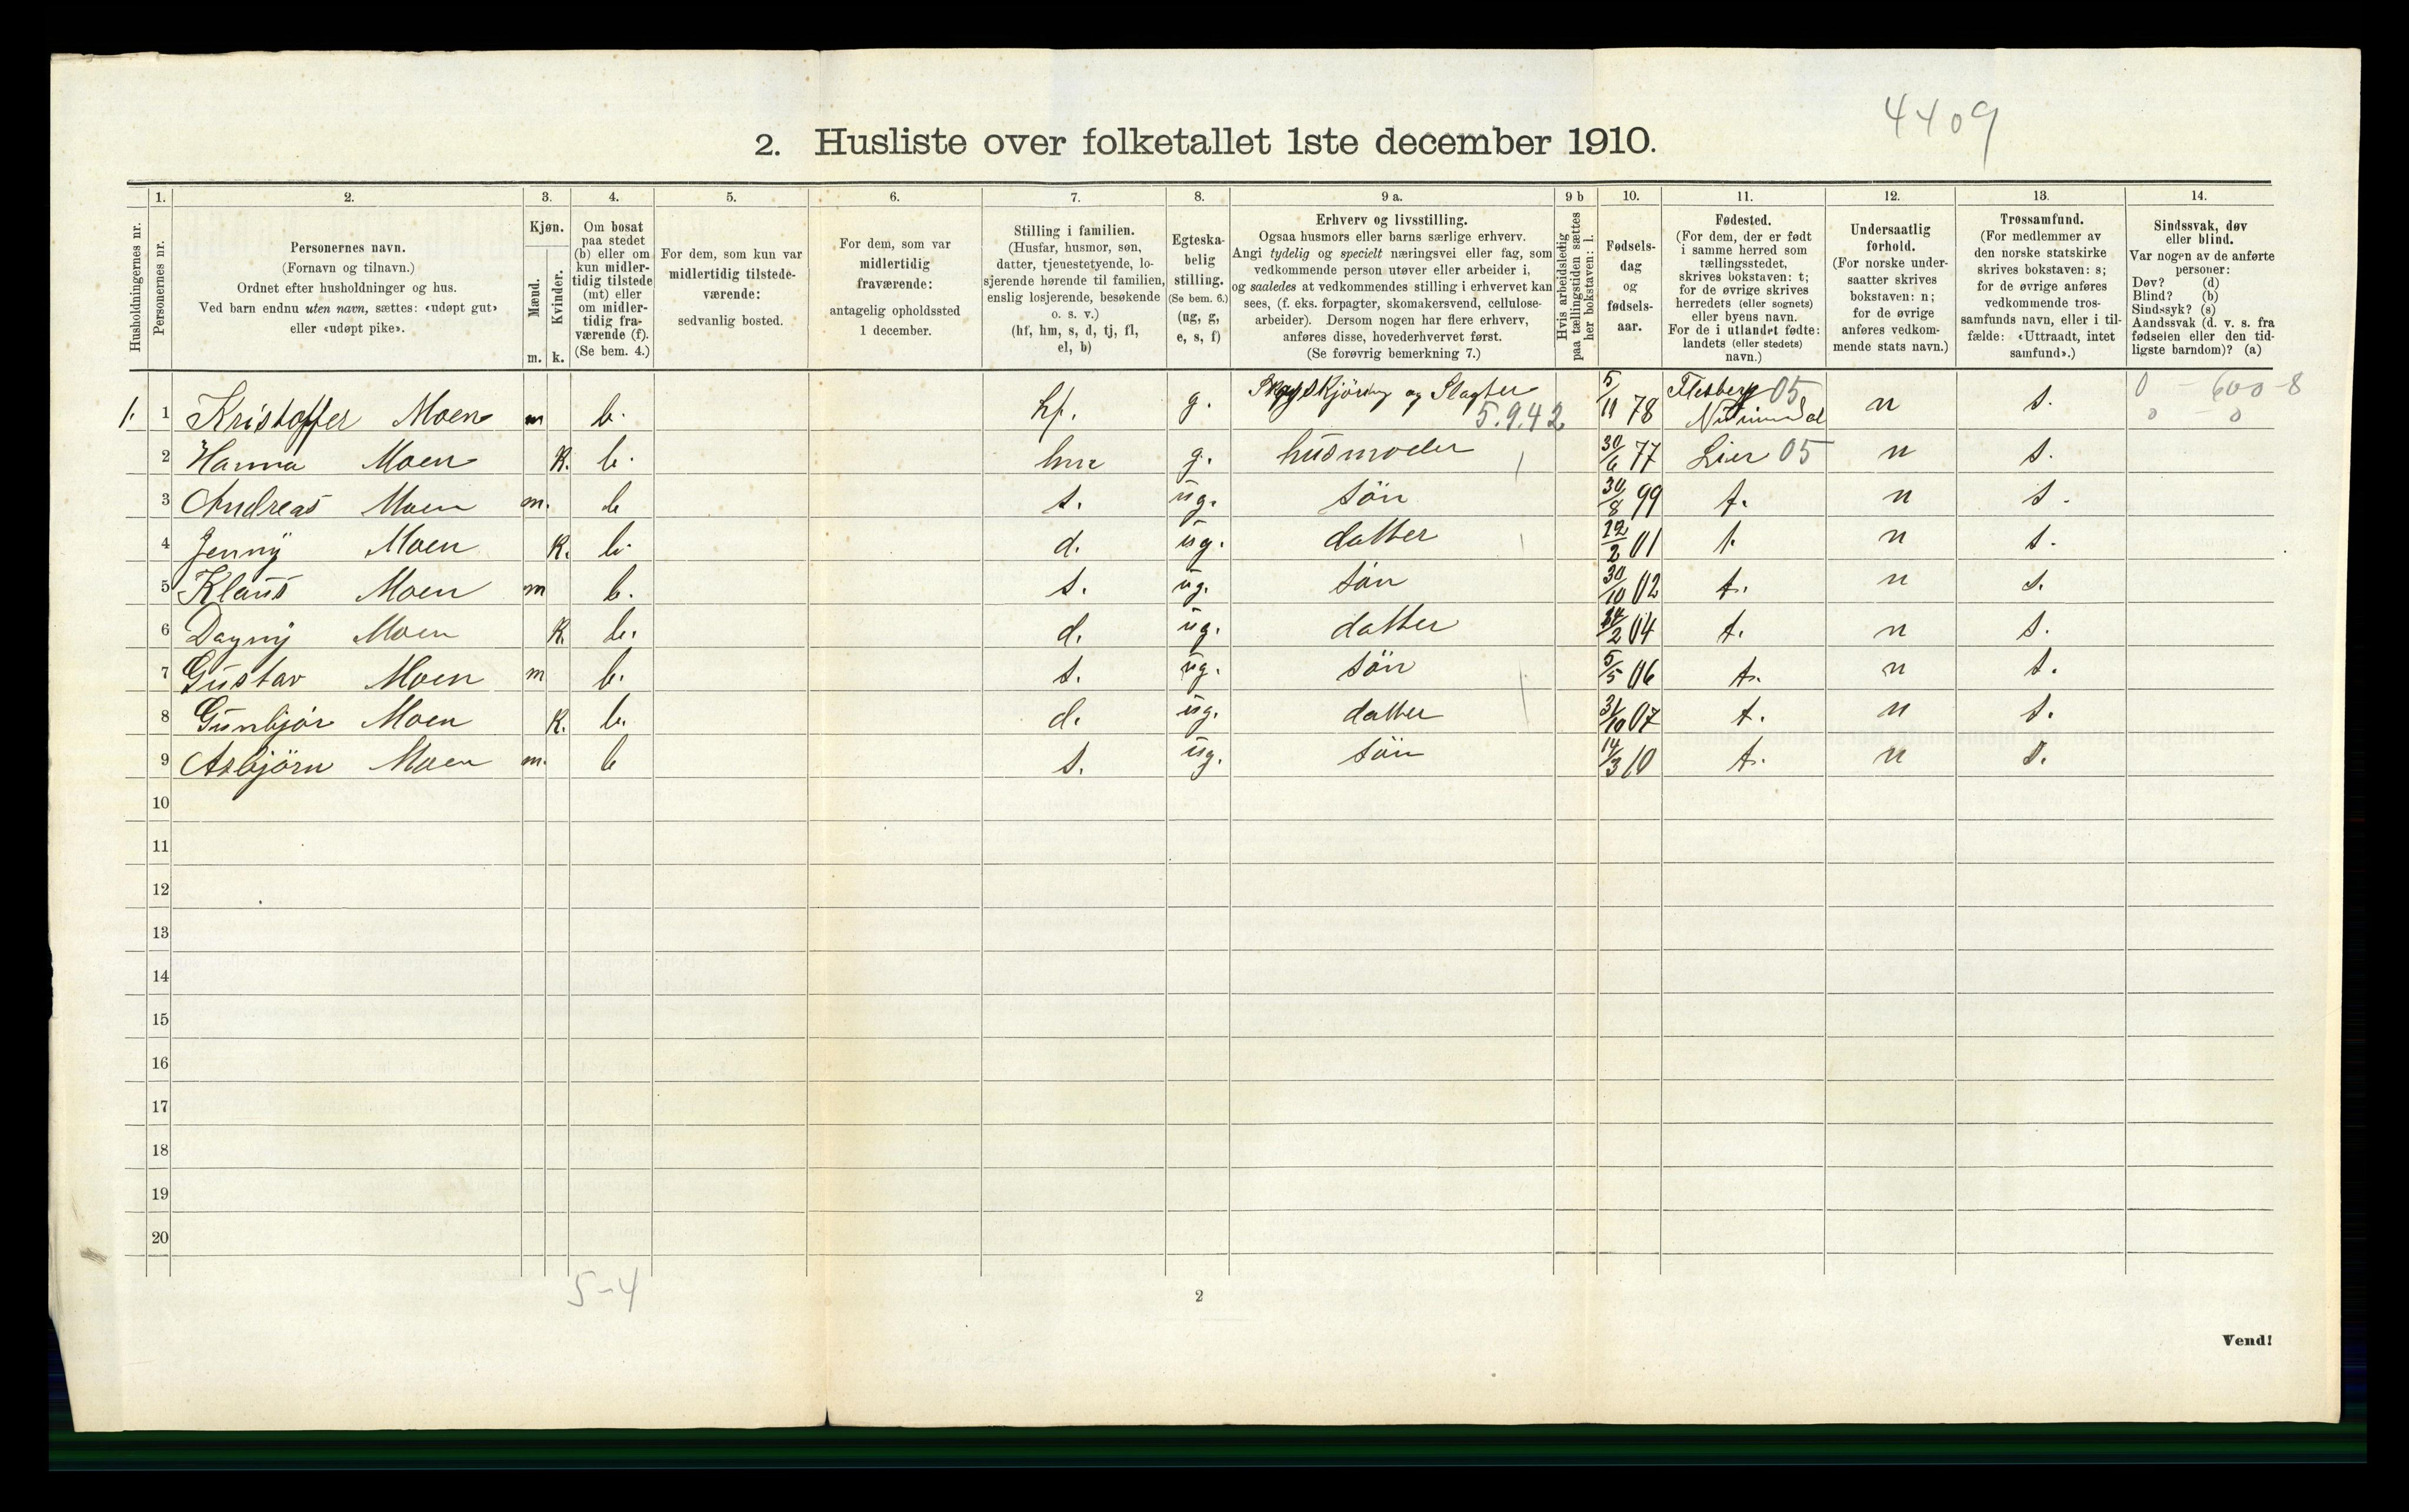 4409
2. Husliste over folketallet 1ste december 1910.
Husholdningernes nr.
1.
Personernes nr.
2.
Personernes navn.
(Fornavn og tilnavn.)
Ordnet efter husholdninger og hus.
Ved barn endnu uten navn, sættes: «udøpt gut»
eller «udøpt pike».
3.
Kjøn.
Mænd.
Kvinder.
m. k.
4.
Om bosat
paa stedet
(b) eller om
kun midler-
tidig tilstede
(mt) eller
om midler-
tidig fra-
værende (f).
(Se bem. 4.)
5.
For dem, som kun var
midlertidig tilstede-
værende:
sedvanlig bosted.
6.
For dem, som var
midlertidig
fraværende:
antagelig opholdssted
1 december.
7.
Stilling i familien.
(Husfar, husmor, søn,
datter, tjenestetyende, lo-
sjerende hørende til familien,
enslig losjerende, besøkende
o. s. v.)
(hf, hm, s, d, tj, fl,
el, b)
8.
Egteska-
belig
stilling.
(Se bem. 6.)
(ug, g,
e, s, f)
9 a.
Erhverv og livsstilling.
Ogsaa husmors eller barns særlige erhverv.
Angi tydelig og specielt næringsvei eller fag, som
vedkommende person utøver eller arbeider i,
og saaledes at vedkommendes stilling i erhvervet kan
sees, (f. eks. forpagter, skomakersvend, cellulose-
arbeider). Dersom nogen har flere erhverv,
anføres disse, hovederhvervet først.
(Se forøvrig bemerkning 7.)
9 b
Hvis arbeidsledig
paa tællingstiden sættes
her bokstaven: l.
10.
Fødsels-
dag
og
fødsels-
aar.
11.
Fødested.
(For dem, der er født
i samme herred som
tællingsstedet,
skrives bokstaven: t;
for de øvrige skrives
herredets (eller sognets)
eller byens navn.
For de i utlandet fødte:
landets (eller stedets)
navn.)
12.
Undersaatlig
forhold.
(For norske under-
saatter skrives
bokstaven: n;
for de øvrige
anføres vedkom-
mende stats navn.)
13.
Trossamfund.
(For medlemmer av
den norske statskirke
skrives bokstaven: s;
for de øvrige anføres
vedkommende tros-
samfunds navn, eller i til-
fælde: «Uttraadt, intet
samfund».)
14.
Sindssvak, døv
eller blind.
Var nogen av de anførte
personer:
Døv? (d)
Blind? (b)
Sindssyk? (s)
Aandssvak (d. v. s. fra
fødselen eller den tid-
ligste barndom)? (a)
1. 1 Kristoffer Moen m b. hf. g. og Slagter 5.9.42 5/11 78 Flesberg 05 n s. 0 - 600-8
0 - 0
2 Hanna Moen k. b. hm g. husmoder 30/6 77 Lier 05 n s.
3 Andreas Moen m. b s. ug. sön 30/8 99 t. n s.
4 Jenny Moen k. b. d. ug. datter 22/2 01 t. n s.
5 Klaus Moen m b. s. ug. sön 30/10 02 t. n s.
6 Dagny Moen k. b. d. ug. datter 24/2 04 t. n s.
7 Gustav Moen m b. s. ug. sön 5/5 06 t. n s.
8 Gunbjør Moen k. b. d. ug. datter 31/10 07 t. n s.
9 Asbjörn Moen m. b s. ug. sön 14/3 10 t. n s.
10
11
12
13
14
15
16
17
18
19
20
5-4
2
Vend!